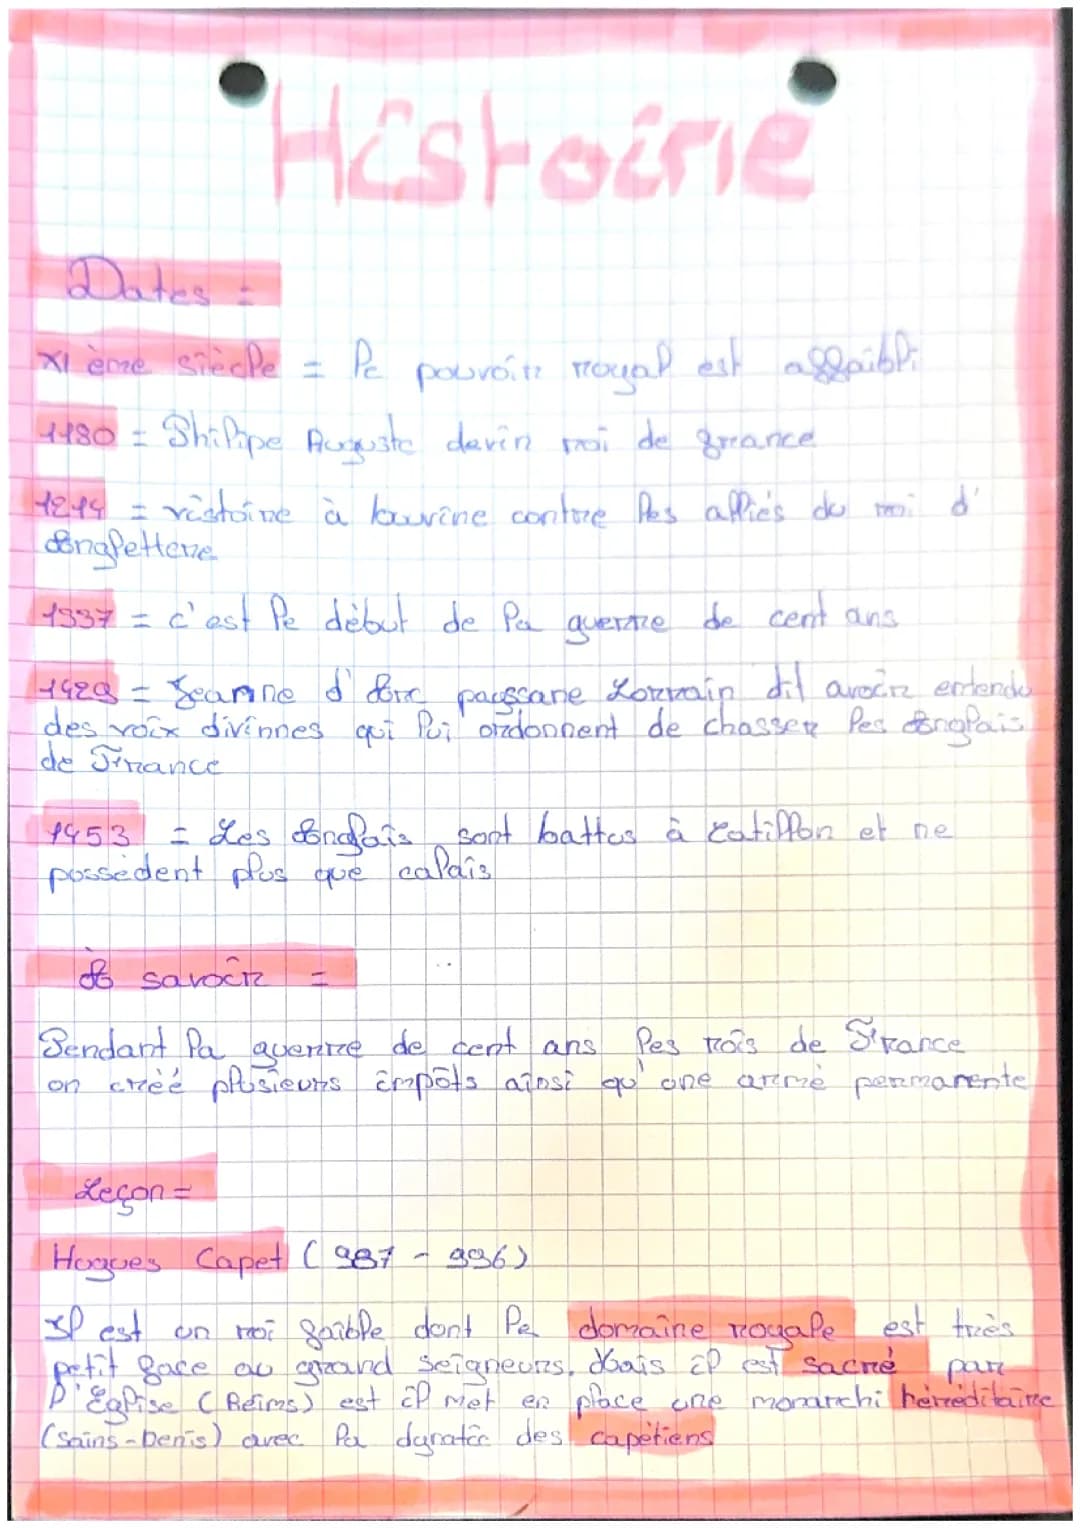 Histoire
Dates =
XI ème siècle = le pouvoir royal est affaibli
1180 = Philipe Auguste devin roi de france
1214 = victoire à bouvine contre les alliés du roi d'
Angletterre
1337 = c'est le début de la guerre de cent ans
1429 = Jeanne d'Arc payssane Lorrain dit avoir entendu
des voix divinnes qui lui ordonnent de chasser les Anglais
de France
1453 = Les Anglais sont battus à Catillon et ne
possèdent plus que calais
A savoir =
Pendant la guerre de cent ans les rois de France
on créé plusieurs impôts ainsi qu'une armé permanente
Leçon =
Hugues Capet (987 - 996)
Il est un roi faible dont le domaine royale est très
petit face au grand seigneurs. Mais il est sacré par
l'Eglise (Reims) est il met en place une monarchi héréditaire
(Sains-Denis) avec la dynatie des capétiens